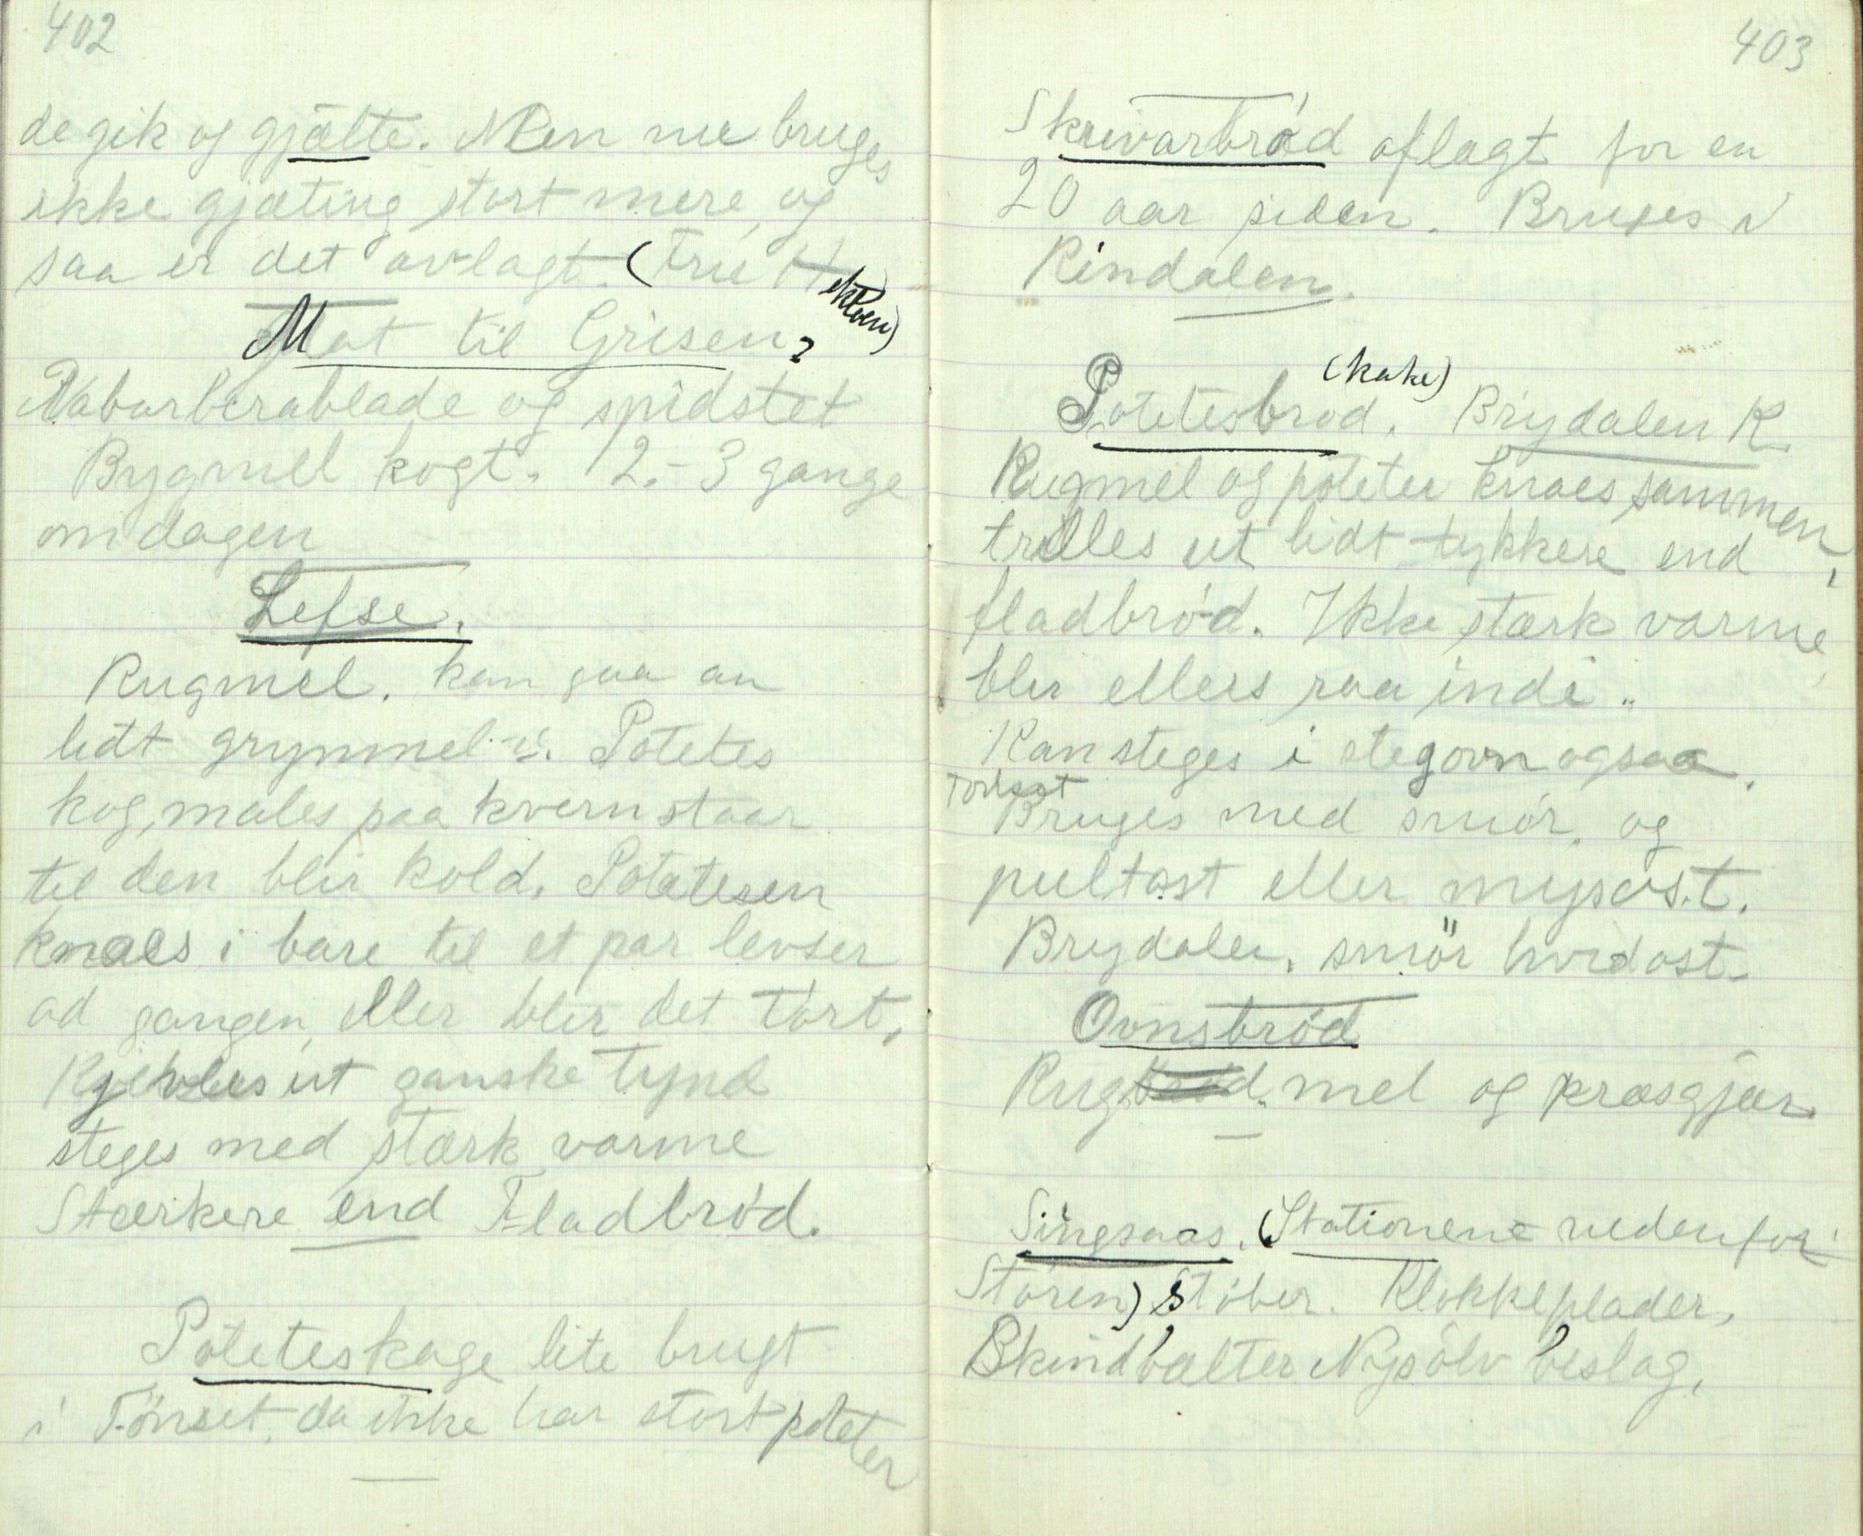 402
de gik og gjætte. Men nu bruges
ikke gjæting stort mere, og
saa er det avlagt. (Fru
Mat til Grisen.
blade og spidstet
Bygmel kogt. 2-3 gange
om dagen
Lefse.
Rugmel. kan gaa an
lidt grynmel i. Potetes
kog, males paa kvern staar
til den blir kold. Potetesen
knaes i bare til et par levser
ad gangen, eller blir det tørt.
Kjevles ut ganske tynd
steges med stærk varme
Stærkere end Fladbrød.
Poteteskage lite brugt
i Tönset, da ikke har stort poteter
403
Skrivarbrød aflagt for en
20 aar siden. Bruges i
Rindalen.
(kake)
Potetesbrød. Brydalen K
Rugmel og poteter knaes sammen,
trilles ut lidt tykkere end
fladbrød. Ikke stærk varme,
blir ellers raa indi.
Kan steges i stegovn ogsaa.
Bruges med smør, og
pultost eller mysost.
Brydalen. smör hvidost.
Ovnsbrød
Rug mel og præsgjær
Singsaas. (Stationene nedenfor
Støren) støber. Klokkeplader,
Skindbælter Nysølv beslag.